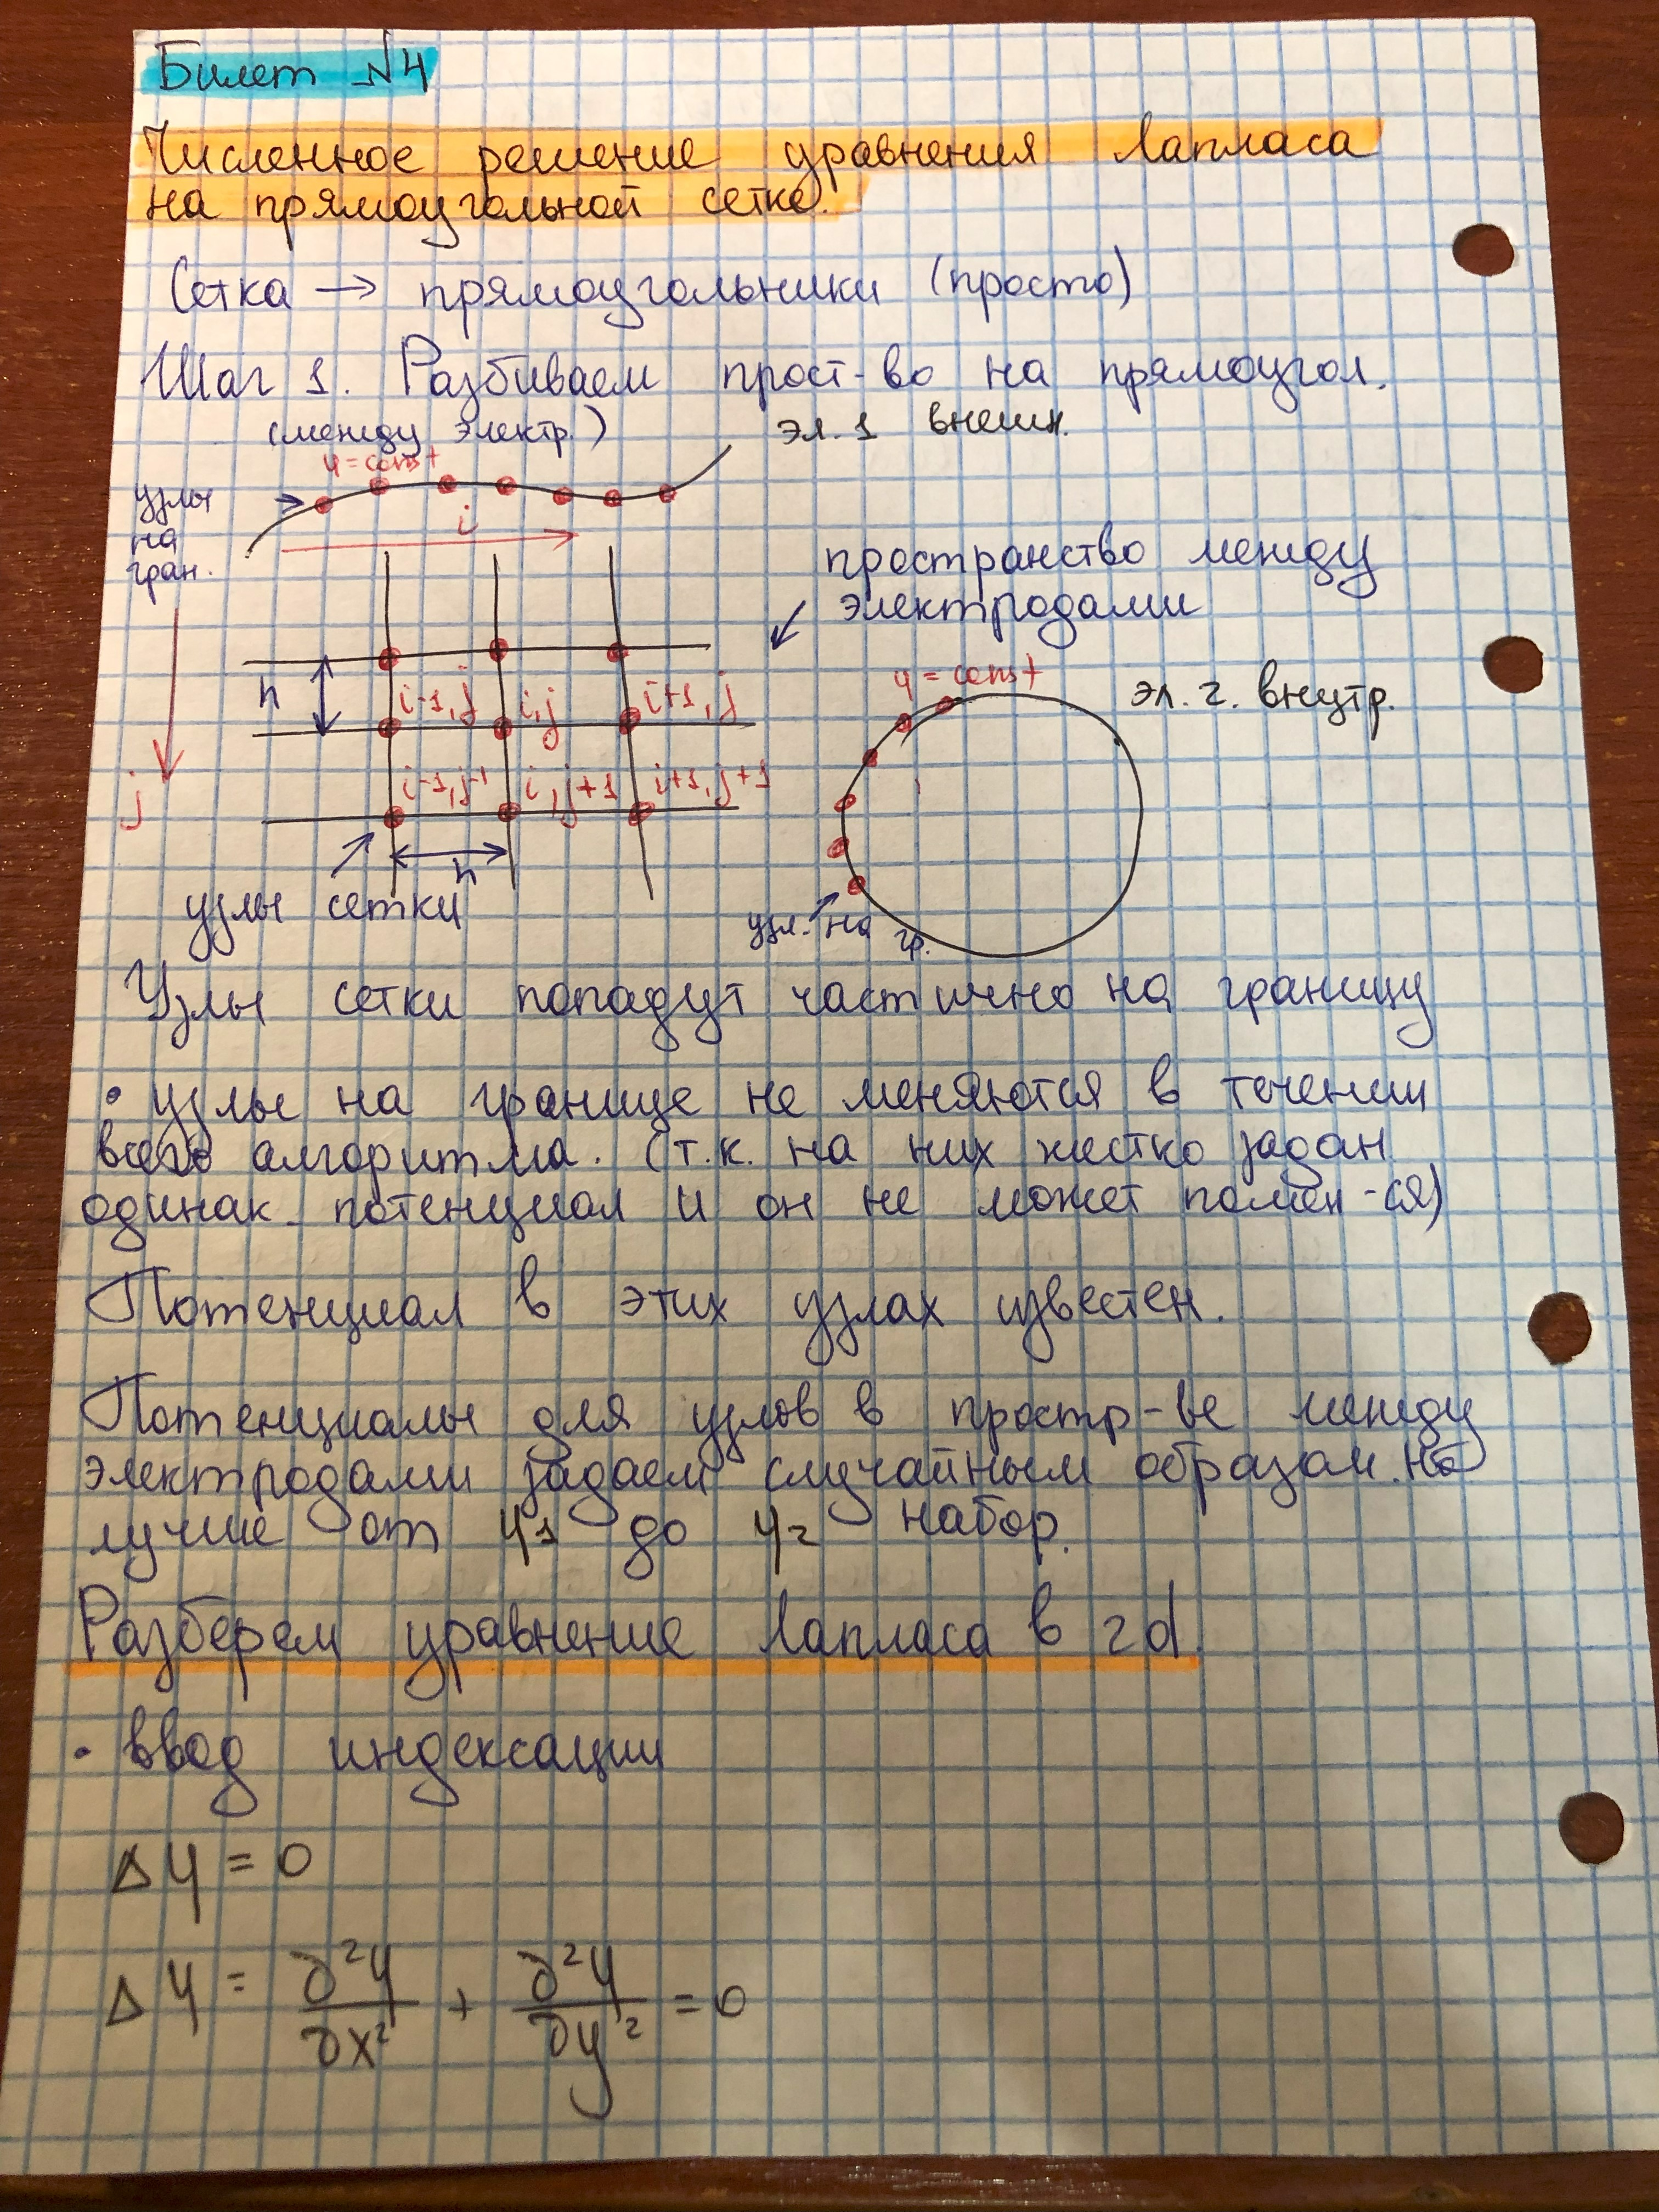 Билет №4
Численное решение уравнения Лапласа
на прямоугольной сетке.
Сетка → прямоугольники (просто)
Шаг 1. Разбиваем прост-во на прямоугол.
(между электр.)
эл. 1 внешн.
φ = const
узлы
на
гран.
i
пространство между
электродами
h
i-1, j
i, j
i+1, j
φ = const
эл. 2. внутр.
j
i-1, j-1
i, j+1
i+1, j+1
h
узлы сетки
узл. на гр.
Узлы сетки попадут частично на границу
• узлы на границе не меняются в течении
всего алгоритма. (т.к. на них жестко задан
одинак. потенциал и он не может помен-ся)
Потенциал в этих узлах известен.
Потенциалы для узлов в простр-ве между
электродами задаем случайным образом. Но
лучше от φ1 до φ2 набор.
Разберем уравнение Лапласа в 2d.
• ввод индексации
Δφ = 0
Δφ = ∂²φ/∂x² + ∂²φ/∂y² = 0